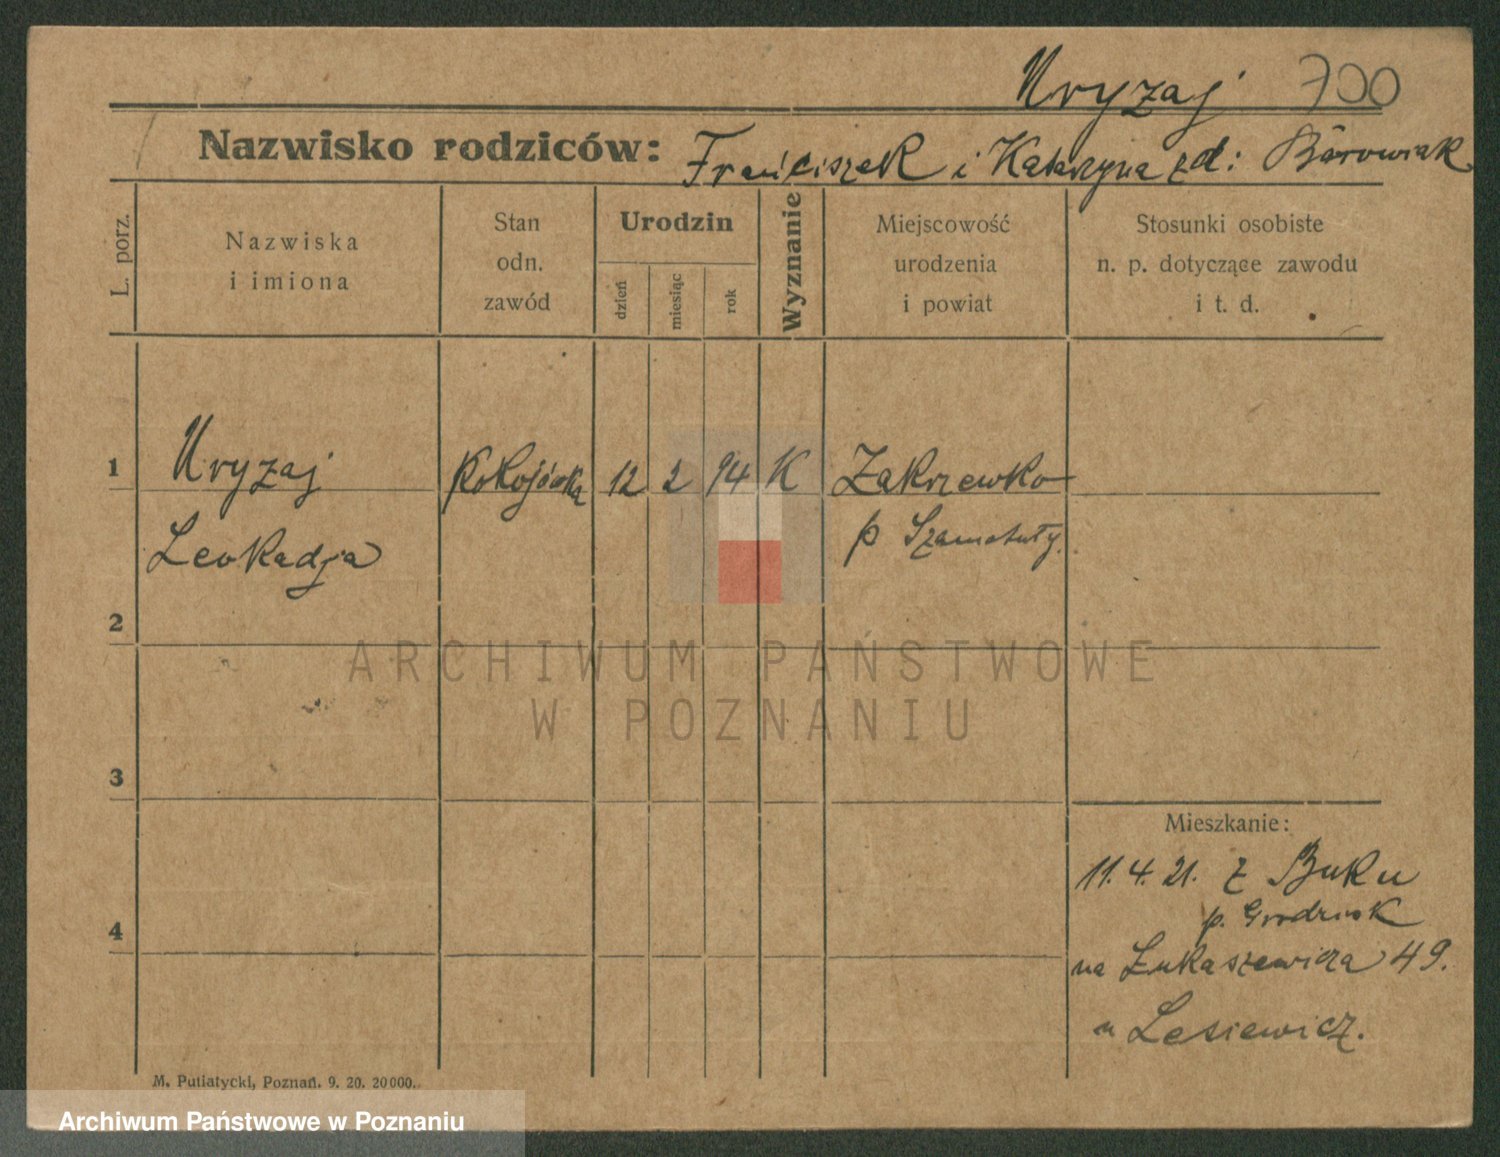 Uryzaj 700
Nazwisko rodziców: Franciszek i Katarzyna zd: Borowiak
L. porz.
Nazwiska
i imiona
Stan
odn.
zawód
Urodzin
dzień
miesiąc
rok
Wyznanie
Miejscowość
urodzenia
i powiat
Stosunki osobiste
n. p. dotyczące zawodu
i t. d.
1 Uryzaj Pokojówka 12 2 94 K Zakrzewko
Leokadja p Szamotuły.
2
ARCHIWUM PAŃSTWOWE
W POZNANIU
3
Mieszkanie:
11.4.21. z Buku
p. Grodzisk
4
na Łukaszewicza 49.
u Lesiewicz.
M. Putiatycki, Poznań. 9. 20. 20000.
Archiwum Państwowe w Poznaniu